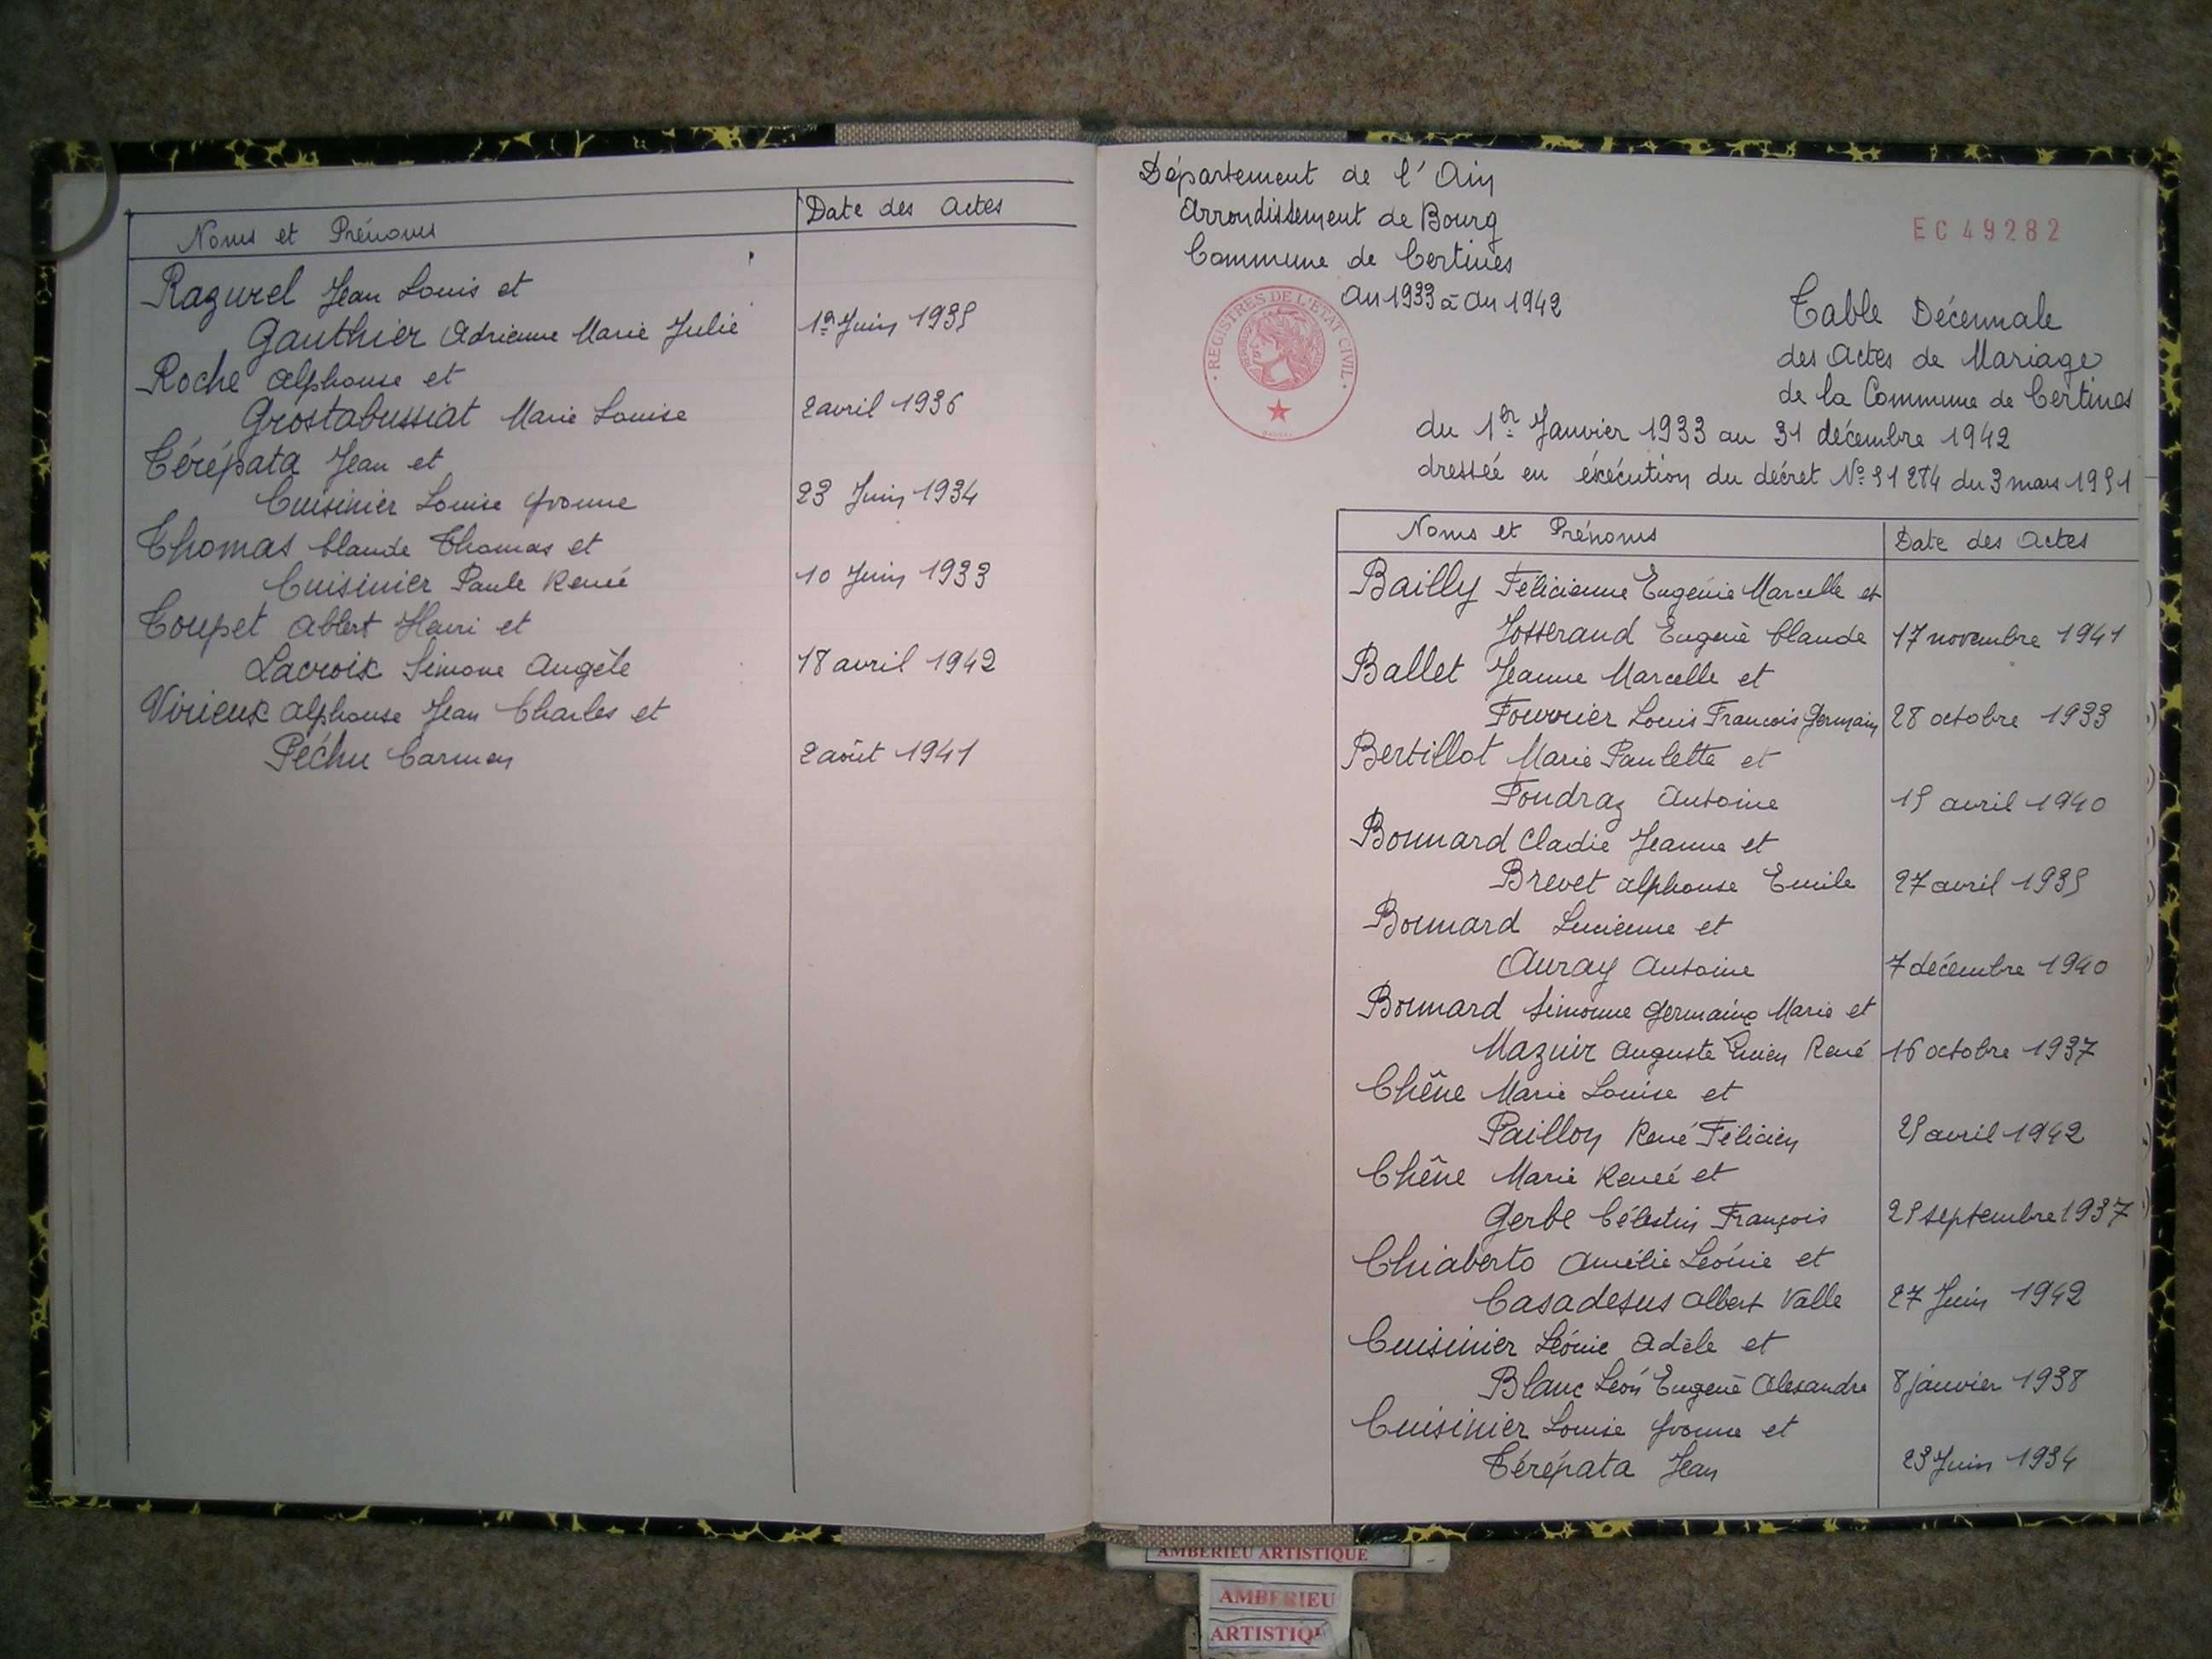 Noms et Prénoms
Date des Actes
Razurel Jean Louis et
Gauthier Adrienne Marie Julie
1er Juin 1935
Roche Alphonse et
Grostabussiat Marie Louise
2 avril 1936
Térépata Jean et
Cuisinier Louise Yvonne
23 Juin 1934
Thomas Claude Thomas et
Cuisinier Paule Renée
10 Juin 1933
Toupet Albert Henri et
Lacroix Simone Angèle
18 avril 1942
Virieux Alphonse Jean Charles et
Péchu Carmen
2 août 1941
Département de l'Ain
Arrondissement de Bourg
Commune de Certines
An 1933 à An 1942
EC 49282
REGISTRES DE L'ETAT CIVIL
Table Décennale
des Actes de Mariage
de la Commune de Certines
du 1er Janvier 1933 au 31 décembre 1942
dressée en éxécution du décret No 51 284 du 3 mars 1951
Noms et Prénoms
Date des Actes
Bailly Félicienne Eugénie Marcelle et
Josserand Eugène Claude
17 novembre 1941
Ballet Jeanne Marcelle et
Fourrier Louis Francois Germain
28 octobre 1933
Bertillot Marie Paulette et
Foudraz Antoine
15 avril 1940
Bonnard Cladie Jeanne et
Brevet Alphonse Emile
27 avril 1935
Bonnard Lucienne et
Auray Antoine
7 décembre 1940
Bonnard Simonne Germaine Marie et
Mazuir Auguste Lucien René
16 octobre 1937
Chêne Marie Louise et
Paillon René Félicien
25 avril 1942
Chêne Marie Renée et
Gerbe Célestin François
25 septembre 1937
Chiaberto Amélie Léonie et
Casadesus Albert Valle
27 Juin 1942
Cuisinier Léonie Adèle et
Blanc Léon Eugène Alexandre
8 janvier 1938
Cuisinier Louise Yvonne et
Térépata Jean
23 Juin 1934
AMBERIEU ARTISTIQUE
AMBERIEU
ARTISTIQU